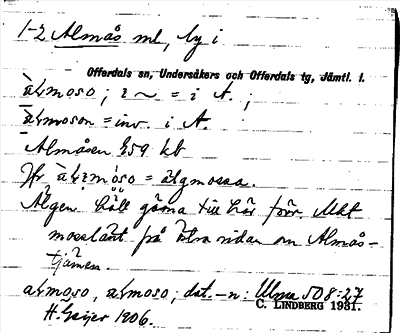 1-2 Almås ml, by i
Offerdals sn, Undersåkers och Offerdals tg, Jämtl. l.
àɫmoso; i ~ = i A. ;
àɫmoson = inv. i A.
Almåsen 859 kb
Jfr = älgmossa.
Älgen höll gärna till här förr. Mkt
mosslänt på östra sidan om Almås-
tjärnen.
àɫmoso, aɫmoso; dat. -n: Ulma 508:27
C. LINDBERG 1931.
H. Geijer 1906.